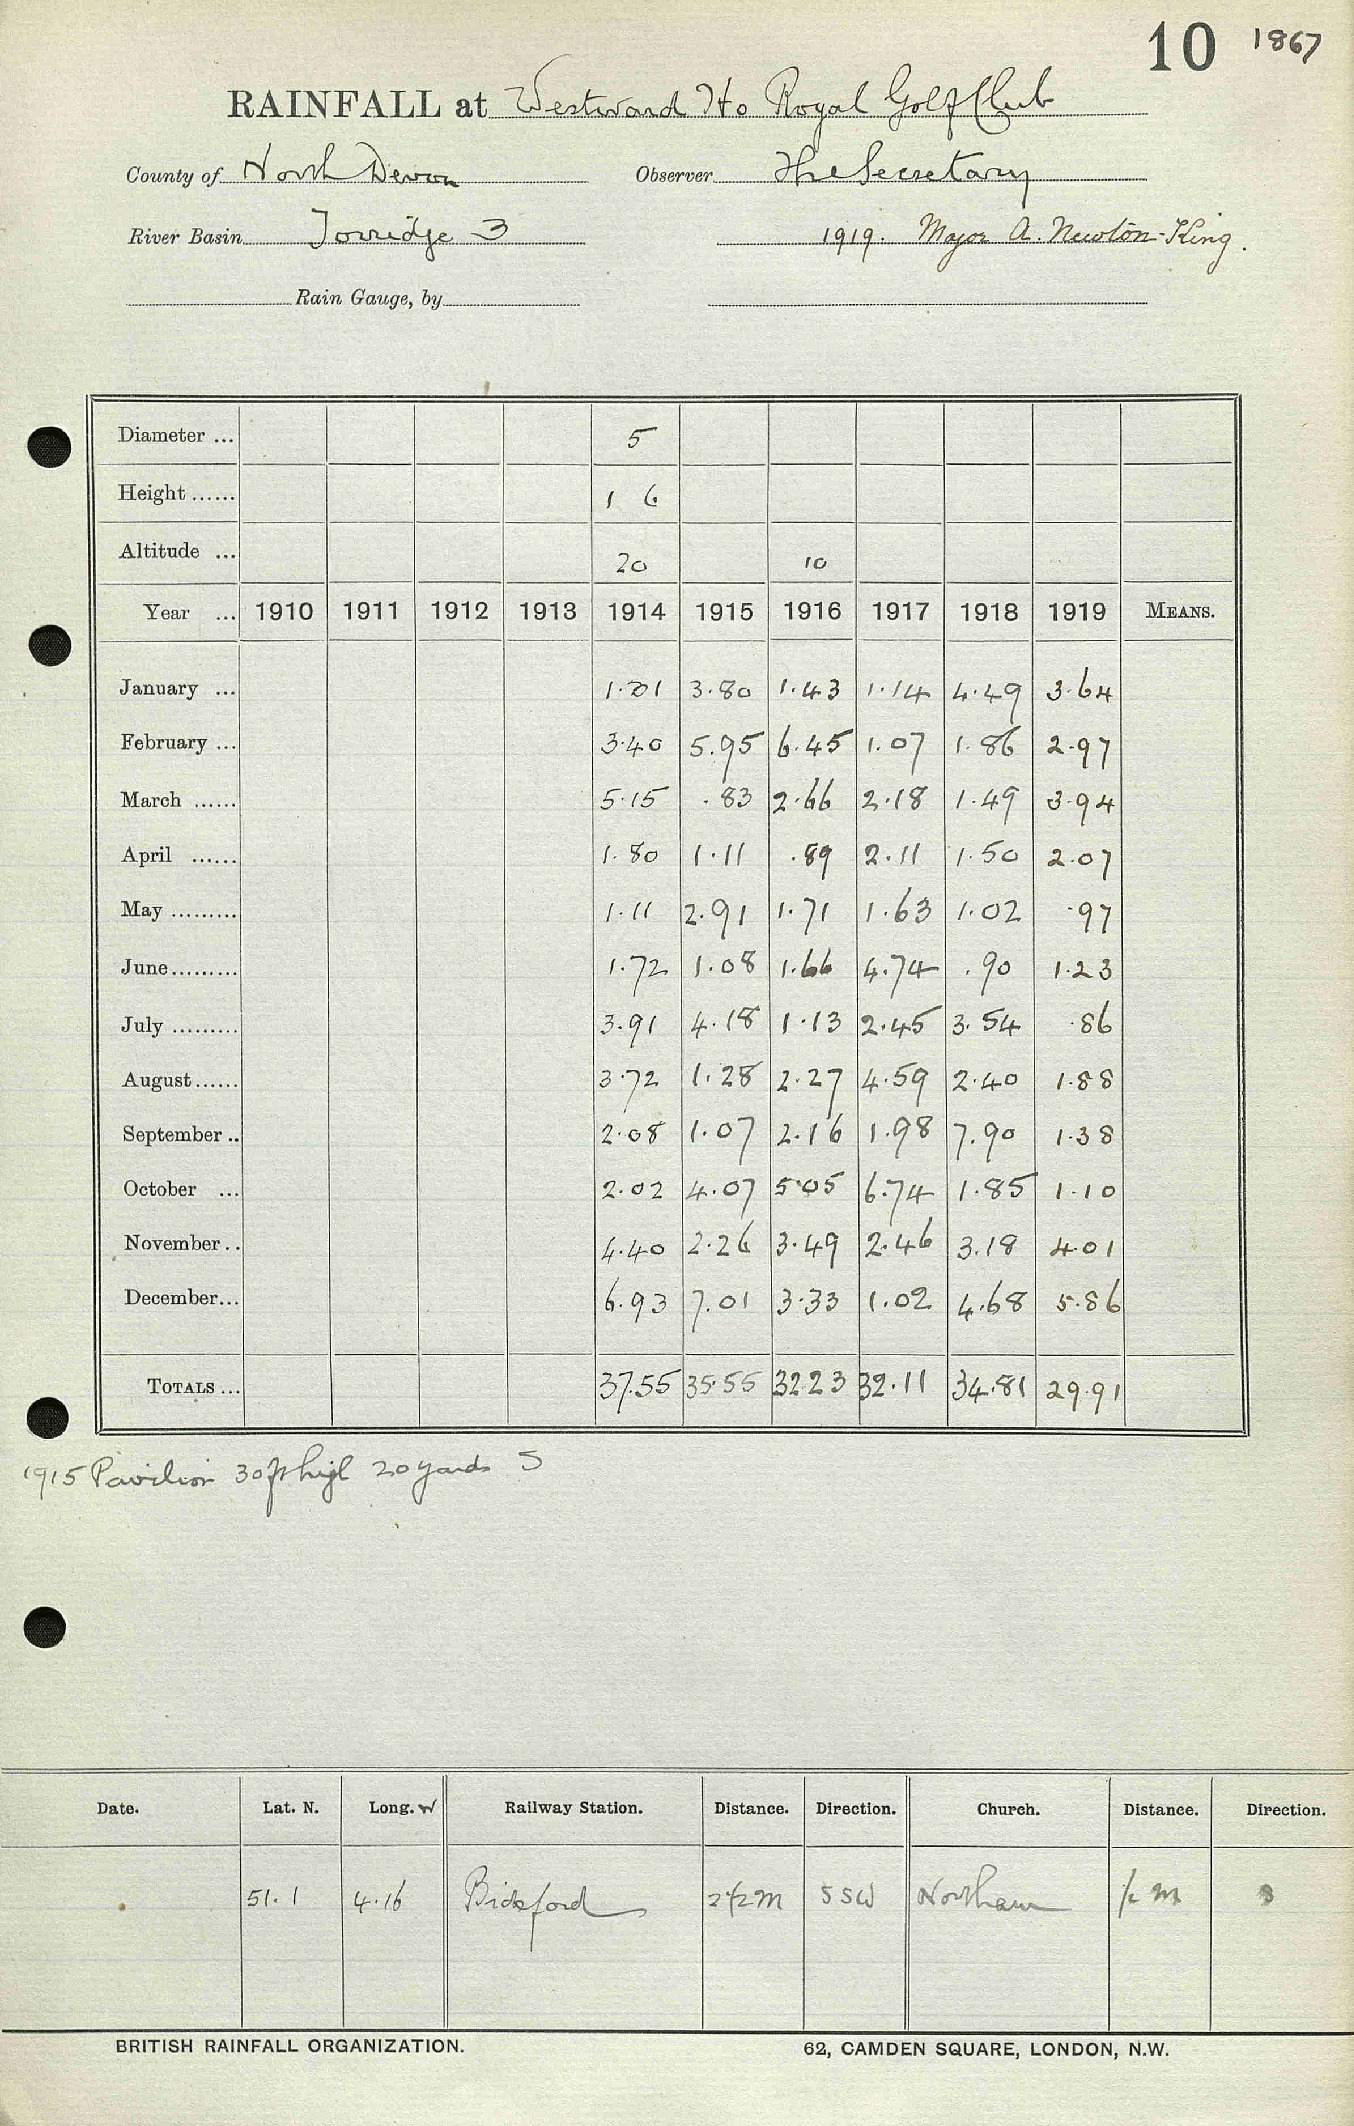 10 1867
RAINFALL at Westward Ho Royal Golf Club
County of North Devon Observer The Secretary
River Basin Torridge 3 1919. Major A. Newton-King.
Rain Gauge, by
Diameter ... 5
Height ...... 1 6
Altitude ... 20 10
Year ... 1910 1911 1912 1913 1914 1915 1916 1917 1918 1919 MEANS.
January ... 1.31 3.80 1.43 1.14 4.49 3.64
February ... 3.40 5.95 6.45 1.07 1.86 2.97
March ...... 5.15 .83 2.66 2.18 1.49 3.94
April ...... 1.80 1.11 .89 2.11 1.50 2.07
May ......... 1.11 2.91 1.71 1.63 1.02 .97
June......... 1.72 1.08 1.66 4.74 .90 1.23
July ......... 3.91 4.18 1.13 2.45 3.54 .86
August...... 3.72 1.28 2.27 4.59 2.40 1.88
September .. 2.08 1.07 2.16 1.98 7.90 1.38
October ... 2.02 4.07 5.05 6.74 1.85 1.10
November .. 4.40 2.26 3.49 2.46 3.18 4.01
December... 6.93 7.01 3.33 1.02 4.68 5.86
TOTALS ... 37.55 35.55 32.23 32.11 34.81 29.91
1915 Pavilion 30ft high 20 yards S
Date. Lat. N. Long. W Railway Station. Distance. Direction. Church. Distance. Direction.
51.1 4.16 Bideford 2 1/2 M SSW Northam 1/2 M S
BRITISH RAINFALL ORGANIZATION. 62, CAMDEN SQUARE, LONDON, N.W.